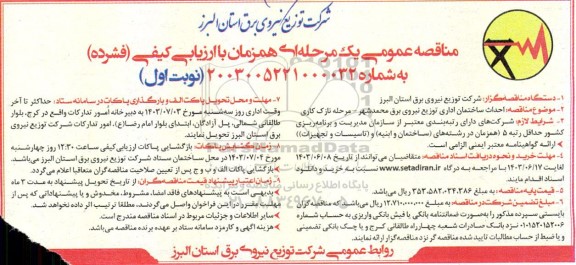 شرکت توزیع نیروی برق استان البرز
مناقصه عمومی یک مرحله‌ای همزمان با ارزیابی کیفی (فشرده)
به شماره ۲۰۰۳۰۰۵۲۲۱۰۰۰۰۳۲ (نوبت اول)
۱- دستگاه مناقصه گزار: شرکت توزیع نیروی برق استان البرز
۲- موضوع مناقصه: احداث ساختمان اداری توزیع نیروی برق محمدشهر - مرحله نازک کاری
۳- شرایط لازم: شرکت‌های دارای رتبه‌بندی معتبر از سازمان مدیریت و برنامه‌ریزی
کشور حداقل رتبه ۵ (همزمان در رشته‌های (ساختمان و ابنیه) و (تاسیسات و تجهیزات))
* ارائه گواهینامه معتبر ایمنی الزامی است.
۴- مهلت خرید و نحوه دریافت اسناد مناقصه: متقاضیان می‌توانند از تاریخ ۱۴۰۳/۰۶/۰۸
لغایت ۱۴۰۳/۰۶/۱۷ با مراجعه به درگاه www.setadiran.ir نسبت به خرید و دانلود
اسناد اقدام نمایند.
۵- قیمت پایه مناقصه: به مبلغ ۳۵۳.۵۸۲.۰۳۴.۳۸۶ ریال می‌باشد.
۶- مبلغ تضمین شرکت در مناقصه: به مبلغ ۱۲.۷۱۰.۰۰۰.۰۰۰ ریال می‌باشد که مناقصه گر
بایستی سپرده مذکور را به‌صورت ضمانتنامه بانکی یا فیش بانکی واریزی به حساب شماره
۰۱۰۱۵۲۰۱۵۲۰۰۶ نزد بانک صادرات شعبه چهارراه طالقانی کرج و یا چک بانکی تضمینی
و یا ضبط از حساب مطالبات تایید شده مناقصه گر نزد مناقصه‌گزار ارائه نمایند.
۷- مهلت و محل تحویل پاکت الف و بارگذاری پاکات در سامانه ستاد: حداکثر تا آخر
وقت اداری روز سه‌شنبه مورخ ۱۴۰۳/۰۷/۰۳ به دبیرخانه امور تدارکات واقع در کرج، بلوار
طالقانی شمالی، پل آزادگان، ابتدای بلوار امام رضا(ع)، امور تدارکات شرکت توزیع نیروی
برق استان البرز تحویل نمایند.
۸- زمان گشایش پاکات: بازگشایی پاکات ارزیابی کیفی ساعت ۱۲:۳۰ روز چهارشنبه
مورخ ۱۴۰۳/۰۷/۰۴ در محل ساختمان ستاد شرکت توزیع نیروی برق استان البرز می‌باشد.
* بازگشایی پاکات الف و ب و ج پس از تعیین صلاحیت مناقصه‌گران متعاقبا اعلام می‌گردد.
۹- زمان اعتبار پیشنهاد قیمت مناقصه‌گران: از تاریخ تحویل پیشنهاد به مدت ۳ ماه
* بدیهی است به پیشنهادهای فاقد امضا، مشروط، مخدوش و یا پیشنهاداتی که پس از
موعد مقرر در این فراخوان واصل می‌گردند، مطلقا ترتیب اثر داده نخواهد شد.
* سایر اطلاعات و جزئیات مربوط در اسناد مناقصه مندرج است.
* هزینه آگهی و کارمزد سامانه ستاد بر عهده برنده مناقصه می‌باشد.
روابط عمومی شرکت توزیع نیروی برق استان البرز